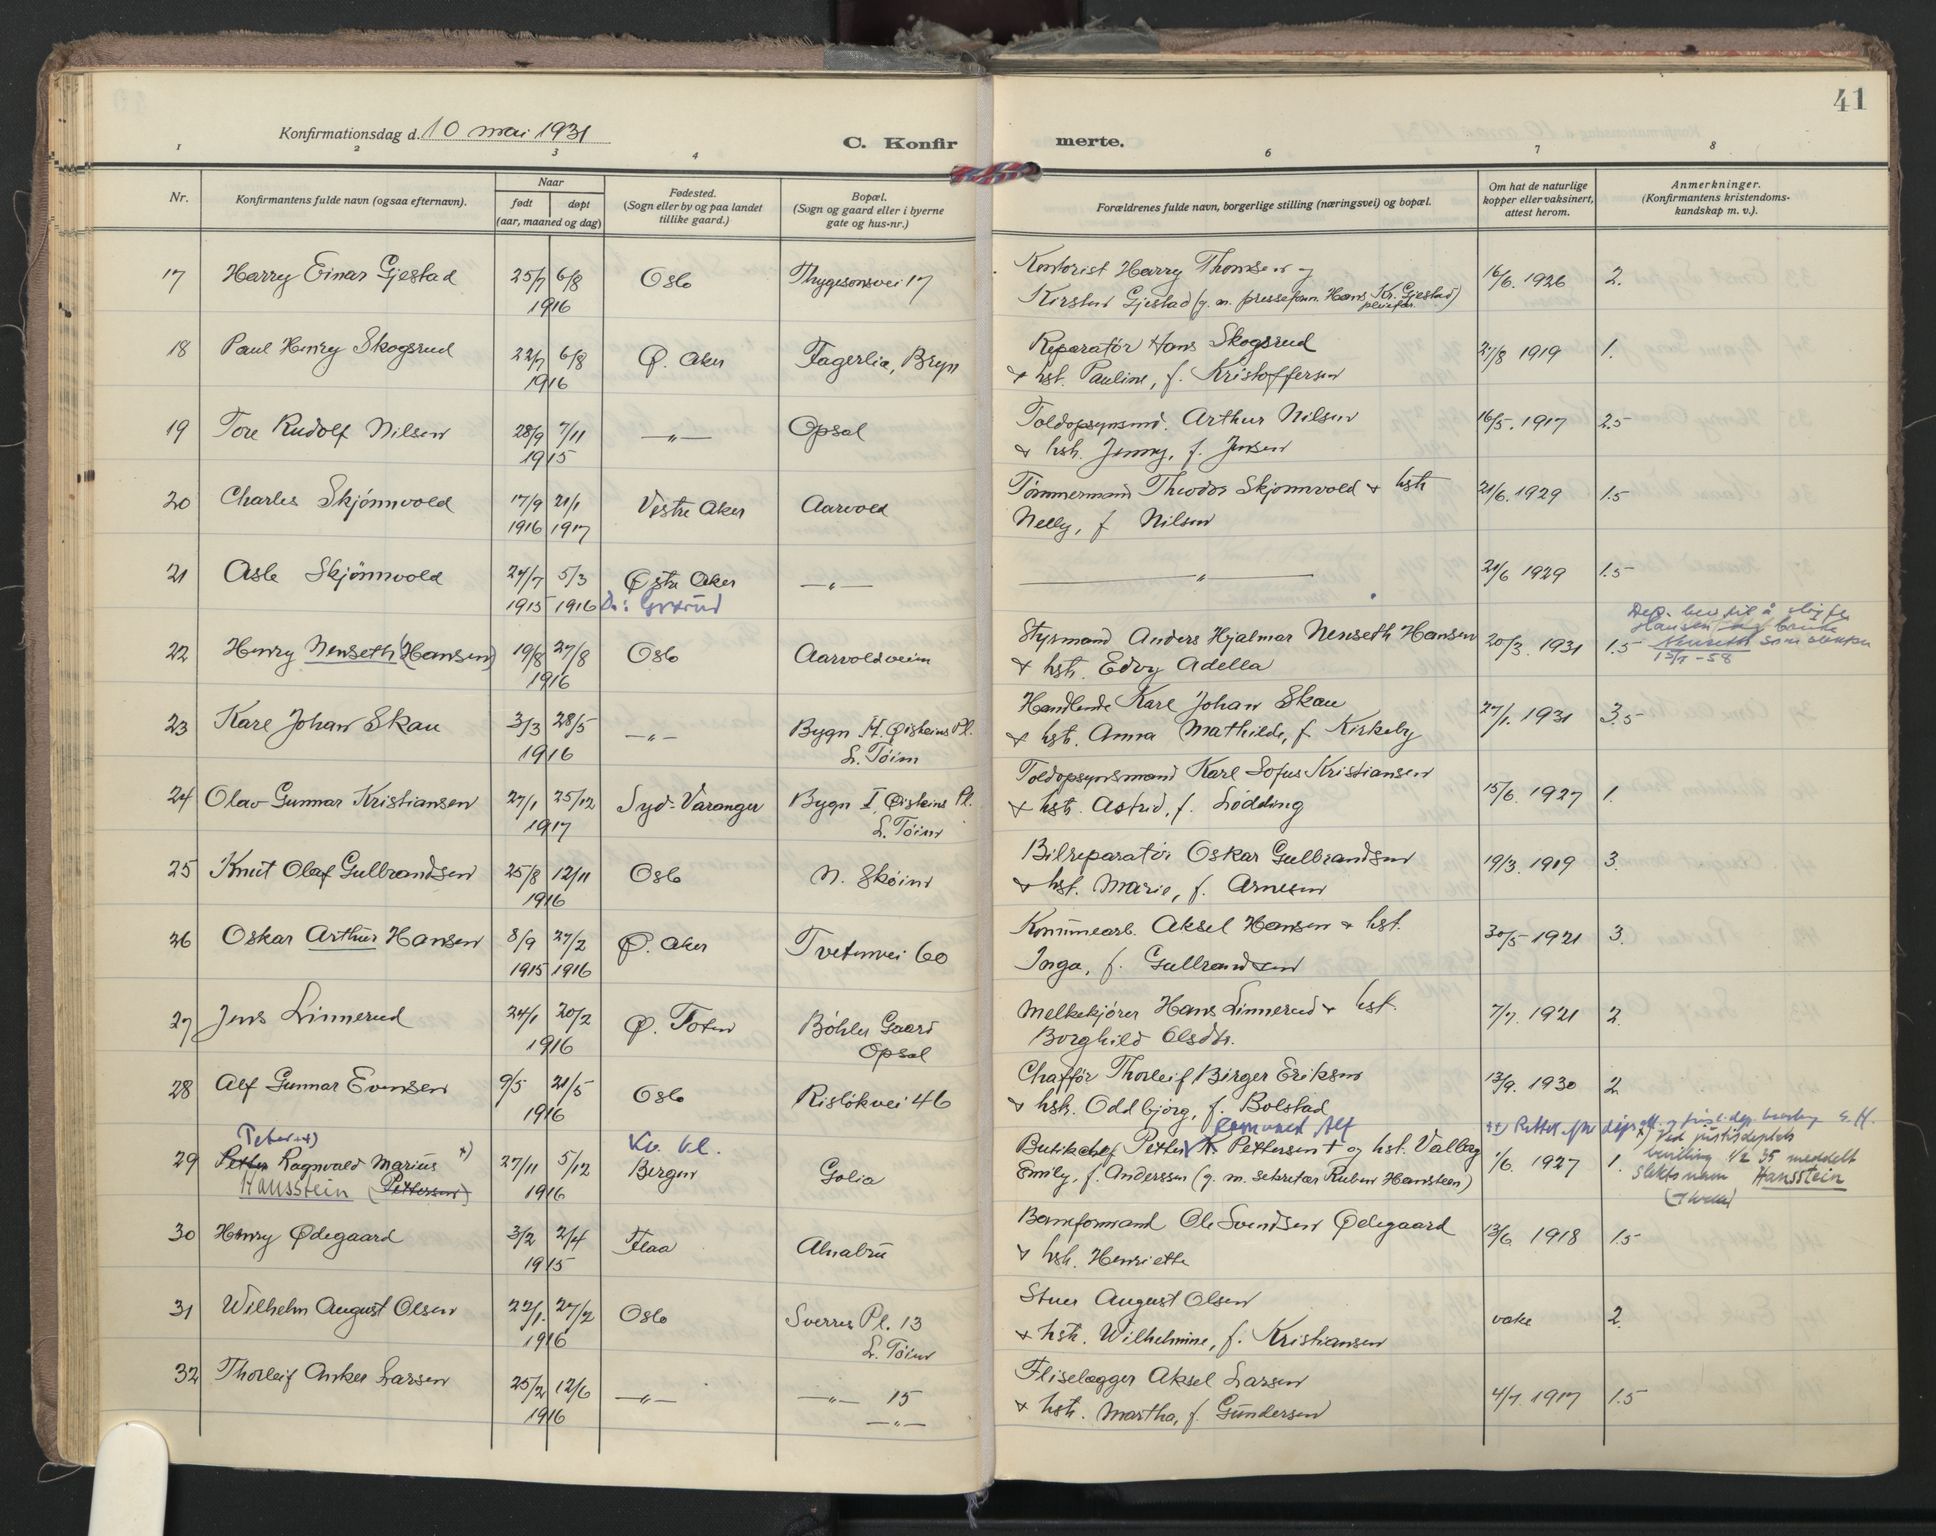 41
Konfirmationsdag d. 10 mai 1931
C. Konfir merte.
1 2 3 4 5 6 7 8
Nr.
Konfirmantens fulde navn (ogsaa efternavn).
Naar
født døpt
(aar, maaned og dag)
Fødested.
(Sogn eller by og paa landet
tillike gaard.)
Bopæl.
(Sogn og gaard eller i byerne
gate og hus-nr.)
Forældrenes fulde navn, borgerlige stilling (næringsvei) og bopæl.
Om hat de naturlige
kopper eller vaksinert,
attest herom.
Anmerkninger.
(Konfirmantens kristendoms-
kundskap m. v.).
17 Harry Einar Gjestad 25/7 6/8 Oslo Thygesonsvei 17 Kontorist Harry Thomsen og 16/6. 1926 2.
1916 Kirsten Gjestad (g. m. presseform. Hans Kr. Gjestad)
pleiefar.
18 Paul Henry Skogsrud 22/7 6/8 Ø. Aker Fagerlia, Bryn Reparatør Hans Skogsrud 27/8 1919 1.
1916 + hst. Pauline, f. Kristoffersen
19 Tore Rudolf Nilsen 28/9 7/11 —"— Opsal Toldopsynsmd. Arthur Nilsen 16/5. 1917 2.5
1915 + hst. Jenny, f. Jensen
20 Charles Skjønnvold 17/9 21/1 Vestre Aker Aarvold Tømmermand Theodor Skjønnvold + hst. 21/6. 1929 1.5
1916 1917 Nelly, f. Nilsen
21 Asle Skjønnvold 24/7 5/3 Østre Aker —"— —"— 21/6 1929 1.5
1915 1916 Grorud
22 Henry Nenseth (Hansen) 19/8 27/8 Oslo Aarvoldveien Styrmand Anders Hjalmar Nenseth Hansen 20/3. 1931 1.5
1916 + hst. Edvy Adella
Dep. bev. til å sløife
Hansen og bruke
Nenseth som
13/1-58
23 Kare Johan Skau 3/3 28/5 —"— Bygn H. Øisteins Pl. Handlende Kare Johan Skau 27/1. 1931 3.5
1916 L. Tøien + hst. Anna Mathilde, f. Kirkeby
24 Olav Gunnar Kristiansen 27/1 25/12 Syd-Varanger Bygn I, Øisteins Pl. Toldopsynsmand Karl Sofus Kristiansen 15/6. 1927 1.
1917 L. Tøien + hst. Astrid, f. Lødding
25 Knut Olaf Gulbrandsen 25/8 12/11 Oslo N. Skøien Bilreparatør Oskar Gulbrandsen 19/3. 1919 3.
1916 + hst. Marie, f. Arnesen
26 Oskar Arthur Hansen 8/9 27/2 Ø. Aker Tvetenvei 60 Kommunearb. Aksel Hansen + hst. 30/5 1921 3.
1915 1916 Inga, f. Gulbrandsen
27 Jens Linnerud 24/1 20/2 Ø. Toten Bøhler Gaard Melkekjører Hans Linnerud + hst. 7/7. 1921 2.
1916 Opsal Borghild Olsdtr.
28 Alf Gunnar Evensen 9/5 21/5 Oslo Risløkvei 46 Chaffør Thorleif Birger Eriksen 13/9. 1930 2
1916 + hst. Oddbjørg, f. Bolstad
29 Petter Ragnvald Marius 27/11 5/12 Bergen Golia Butikchef Petter K Pettersen + og hst. Valborg 1/6. 1927 1.
Hansstein (Pettersen) 1916 Emily, f. Anderssen (g. m. sekretær Ruben Hansteen)
x) Ved justisdeptets
bevilling 1/2 35 meddelt
slektsnavn Hansstein
30 Henry Ødegaard 3/2 2/4 Flaa Alnabru Baneformand Ole Svendsen Ødegaard 13/6 1918 1.5
1915 + hst. Henriette
31 Wilhelm August Olsen 22/1. 27/2 Oslo Sverres Pl. 13 Stuer August Olsen vake 2.
1916 L. Tøien + hst. Wilhelmine, f. Kristiansen
32 Thorleif Anker Larsen 25/2 12/6 —"— —"— 15 Fliselægger Aksel Larsen 4/7. 1917 1.5
1916 —"— + hst. Martha, f. Gundersen